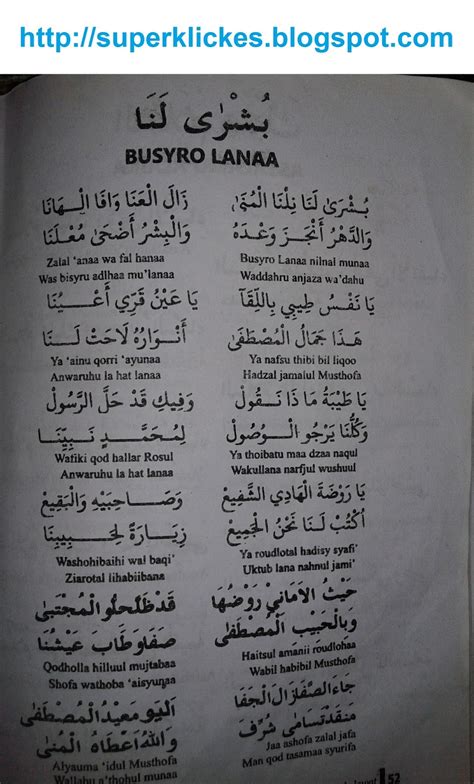 http://superklickes.blogspot.com
بُشْرٰى لَنَا
BUSYRO LANAA
بُشْرَى لَنَا نِلْنَا الْمُنَى
زَالَ الْعَنَا وَافَا الْهَانَا
وَالدَّهْرُ أَنْجَزَ وَعْدَهُ
وَالْبِشْرُ أَضْحَى مُعْلَنَا
Busyro Lanaa nilnal munaa
Waddahru anjaza wa'dahu
Zalal 'anaa wa fal hanaa
Was bisyru adlhaa mu'lanaa
يَا نَفْسُ طِيْبِي بِاللِّقَآ
يَا عَيْنُ قَرِّي أَعْيُنَا
هَذَا جَمَالُ الْمُصْطَفَى
أَنْوَارُهُ لَاحَتْ لَنَا
Ya nafsu thibi bil liqoo
Hadzal jamaiul Musthofa
Ya 'ainu qorri 'ayunaa
Anwaruhu la hat lanaa
يَا طَيْبَةُ مَا ذَا نَقُولُ
وَفِيكِ قَدْ حَلَّ الرَّسُولُ
وَكُلُّنَا يَرْجُو الْوُصُولُ
لِمُحَمَّدٍ نَبِيِّنَا
Ya thoibatu maa dzaa naqul
Wakullana narfjul wushuul
Wafiki qod hallar Rosul
Anwaruhu la hat lanaa
يَا رَوْضَةَ الْهَادِي الشَّفِيعْ
وَصَاحِبَيْهِ وَالْبَقِيعْ
أُكْتُبْ لَنَا نَحْنُ الْجَمِيعْ
زِيَارَةً لِحَبِيبِنَا
Ya roudlotal hadisy syafi'
Uktub lana nahnul jami'
Washohibaihi wal baqi'
Ziarotal lihabiibana
حَيْثُ الأَمَانِي رَوْضُهَا
قَدْ ظَلَّ حُلْوُ الْمُجْتَبَى
وَبِالْحَبِيبِ الْمُصْطَفَى
صَفَا وَطَابَ عَيْشُنَا
Haitsul amanii roudlohaa
Wabil habibil Musthofa
Qodholla hilluul mujtabaa
Shofa wathoba 'aisyunaa
جَاءَ الصَّفَا زَالَ الْجَفَا
اَلْيَوْمَ عِيْدُ الْمُصْطَفَى
مَنْ قَدْ تَسَامَى شُرِّفَ
وَاللهُ أَعْطَاهُ الْمُنَى
Jaa ashofa zalal jafa
Man qod tasamaa syurifa
Alyauma 'idul Musthofa
Wallahu a'thohul munaa
52